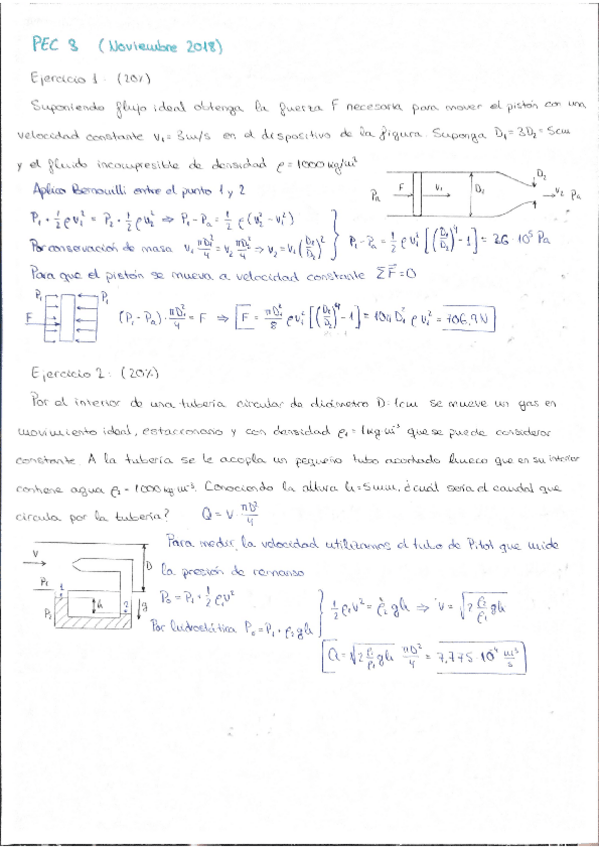 PEC 3 (Noviembre 2018)
Ejercicio 1: (20%)
Suponiendo flujo ideal obtenga la fuerza F necesaria para mover el pistón con una
velocidad constante v₁ = 3m/s en el dispositivo de la figura. Suponga D₁ = 3D₂ = 5cm
y el fluido incompresible de densidad ρ = 1000 kg/m³
Aplico Bernouilli entre el punto 1 y 2
Pa F v₁ D₁ D₂ v₂ Pa
P₁ + 1/2 ρ v₁² = P₂ + 1/2 ρ v₂² ⇒ P₁ - Pa = 1/2 ρ (v₂² - v₁²)
Por conservación de masa v₁ πD₁²/4 = v₂ πD₂²/4 → v₂ = v₁ (D₁/D₂)²
P₁ - Pa = 1/2 ρ v₁² [(D₁/D₂)⁴ - 1] = 3.6 · 10⁵ Pa
Para que el pistón se mueva a velocidad constante ΣF = 0
Pa P₁
F
(P₁ - Pa) · πD₁²/4 = F ⇒ F = πD₁²/8 ρ v₁² [(D₁/D₂)⁴ - 1] = 10π D₁² ρ v₁² = 706,9 N
Ejercicio 2: (20%)
Por el interior de una tubería circular de diámetro D = 1cm se mueve un gas en
movimiento ideal, estacionario y con densidad ρ₁ = 1 kg m⁻³ que se puede considerar
constante. A la tubería se le acopla un pequeño tubo acodado hueco que en su interior
contiene agua ρ₂ = 1000 kg m⁻³. Conociendo la altura h = 5mm, ¿cuál sería el caudal que
circula por la tubería? Q = v · πD²/4
Para medir la velocidad utilizamos el tubo de Pitot que mide
la presión de remanso
v D
P₁ 1 h 2 g
P₂
P₀ = P₁ + 1/2 ρ₁ v²
Por hidrostática P₀ = P₁ + ρ₂ g h
1/2 ρ₁ v² = ρ₂ g h ⇒ v = √(2 ρ₂/ρ₁ g h)
Q = √(2 ρ₂/ρ₁ g h) πD²/4 = 7,775 · 10⁻⁴ m³/s